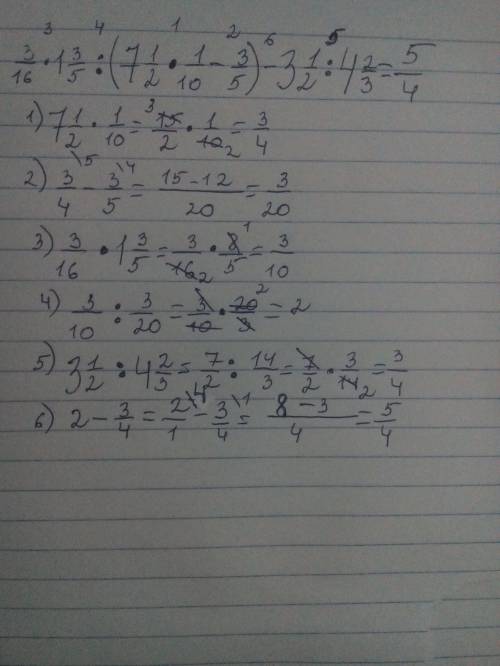 3/16 · 1 3/5 : (7 1/2 · 1/10 - 3/5) - 3 1/2 : 4 2/3 = 5/4
1) 7 1/2 · 1/10 = 15/2 · 1/10 = 3/4
2) 3/4 - 3/5 = 15-12/20 = 3/20
3) 3/16 · 1 3/5 = 3/16 · 8/5 = 3/10
4) 3/10 : 3/20 = 3/10 · 20/3 = 2
5) 3 1/2 : 4 2/3 = 7/2 : 14/3 = 7/2 · 3/14 = 3/4
6) 2 - 3/4 = 2/1 - 3/4 = 8-3/4 = 5/4